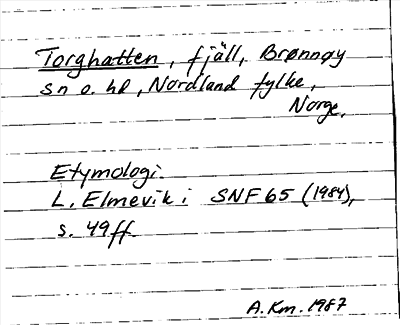 Torghatten, fjäll, Brønnøy
sn o. hd, Nordland fylke,
Norge.
Etymologi
L. Elmevik i SNF 65 (1984),
s. 49ff.
A.Km. 1987